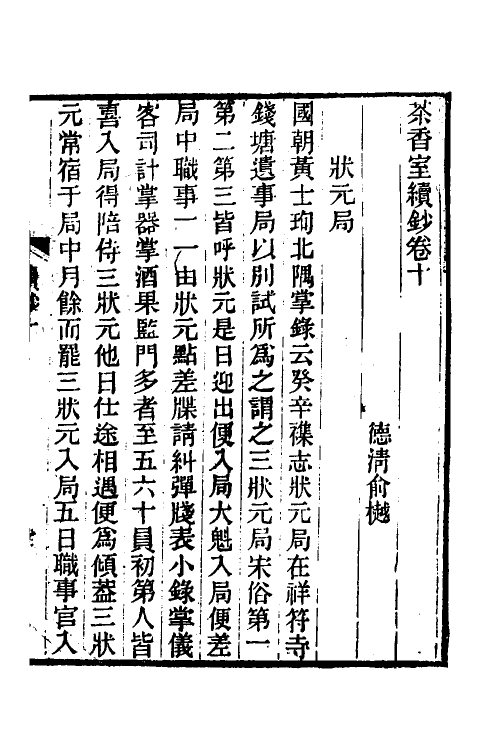 茶香室續鈔卷十
德淸俞樾
狀元局
國朝黃士珣北隅掌錄云癸辛襍志狀元局在祥符寺
錢塘遺事局以別試所爲之謂之三狀元局宋俗第一
第二第三皆呼狀元是日迎出便入局大魁入局便差
局中職事一一由狀元點差牒請糾彈牋表小錄掌儀
客司計掌器掌酒果監門多者至五六十員初第人皆
喜入局得陪侍三狀元他日仕途相遇便爲傾蓋三狀
元常宿于局中月餘而罷三狀元入局五日職事官入